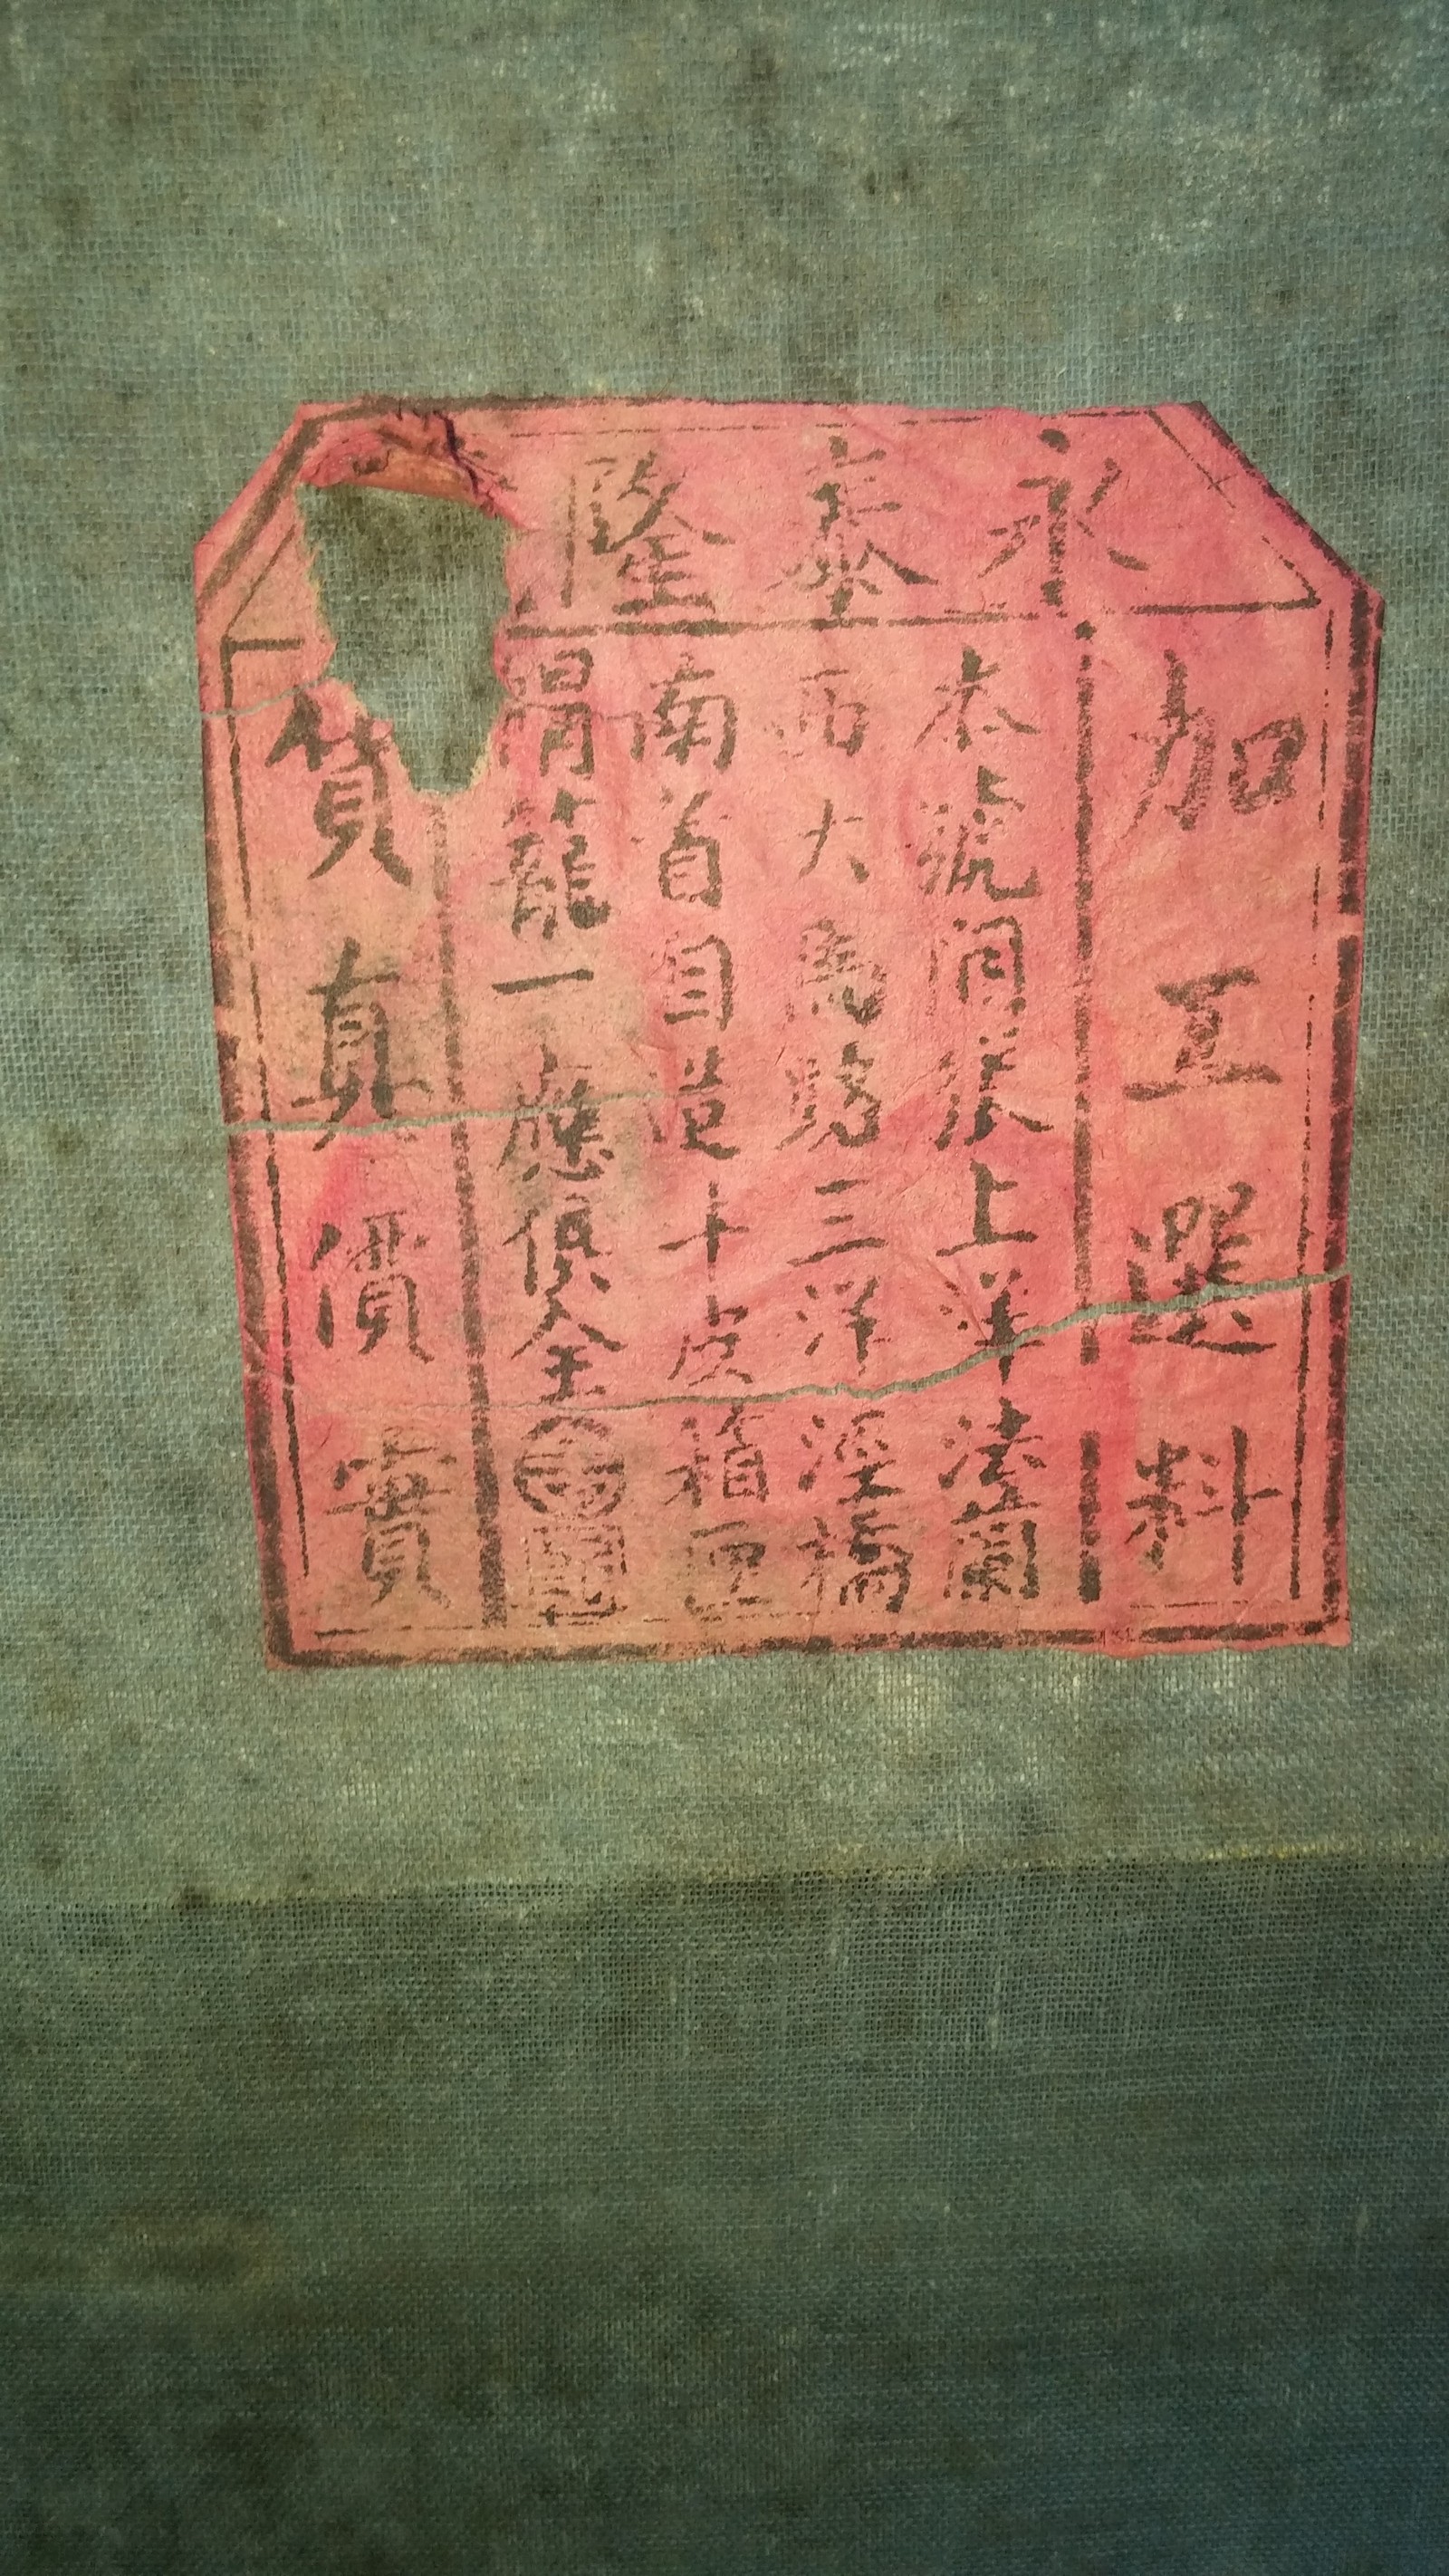 永泰隆
加工選料
本號開張上洋法蘭
西大馬路三洋涇橋
南首自造牛皮箱匣
籠一應俱全
貨真價實